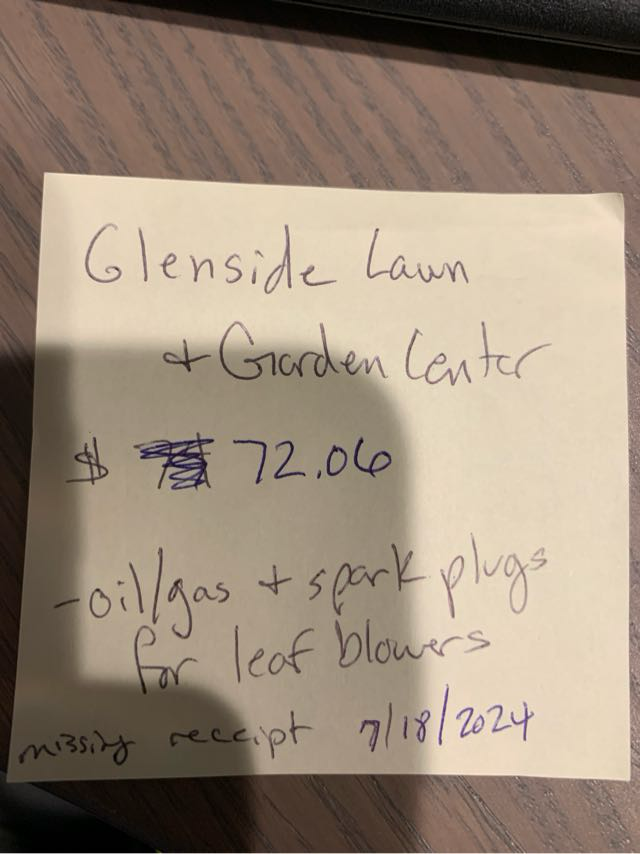 Glenside Lawn
+ Garden Center
$ 72.06
- oil/gas + spark plugs
for leaf blowers
missing receipt 7/18/2024